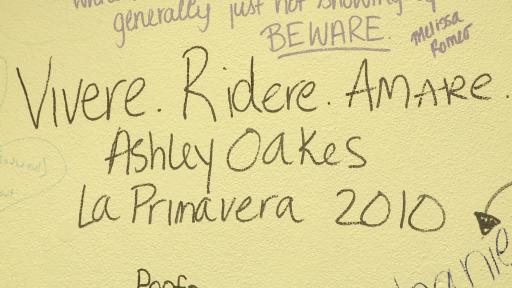 generally just not showing up
BEWARE.
Melissa
Romer
Vivere. Ridere. AMARE.
Ashley Oakes
La Primavera 2010